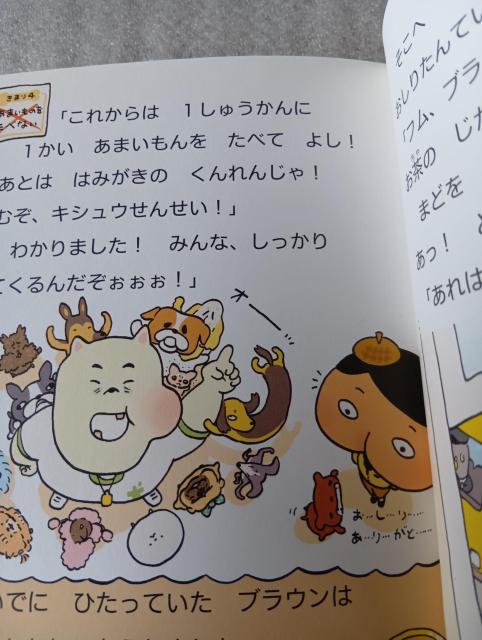 きまり4
「これからは　1しゅうかんに
1かい　あまいもんを　たべて　よし！
あとは　はみがきの　くんれんじゃ！
むぞ、キシュウせんせい！」
わかりました！　みんな、しっかり
てくるんだぞぉぉぉ！」
オー
お…し…り……
あ…り…がと……
いでに　ひたっていた　ブラウンは
そこへ
おしりたんてい
「フム、ブラ
お茶の　じた
まどを
あっ！　と
「あれは